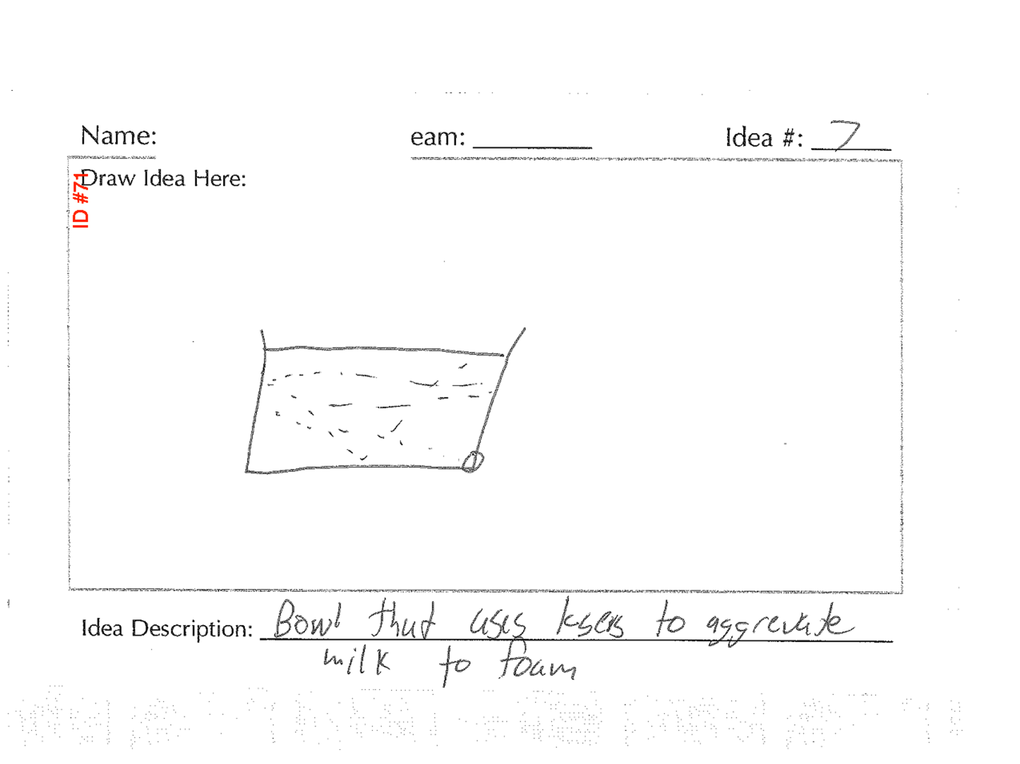 Name:
eam:
Idea #: 7
Draw Idea Here:
ID #71
Idea Description: Bowl that uses lasers to aggrevate
milk to foam